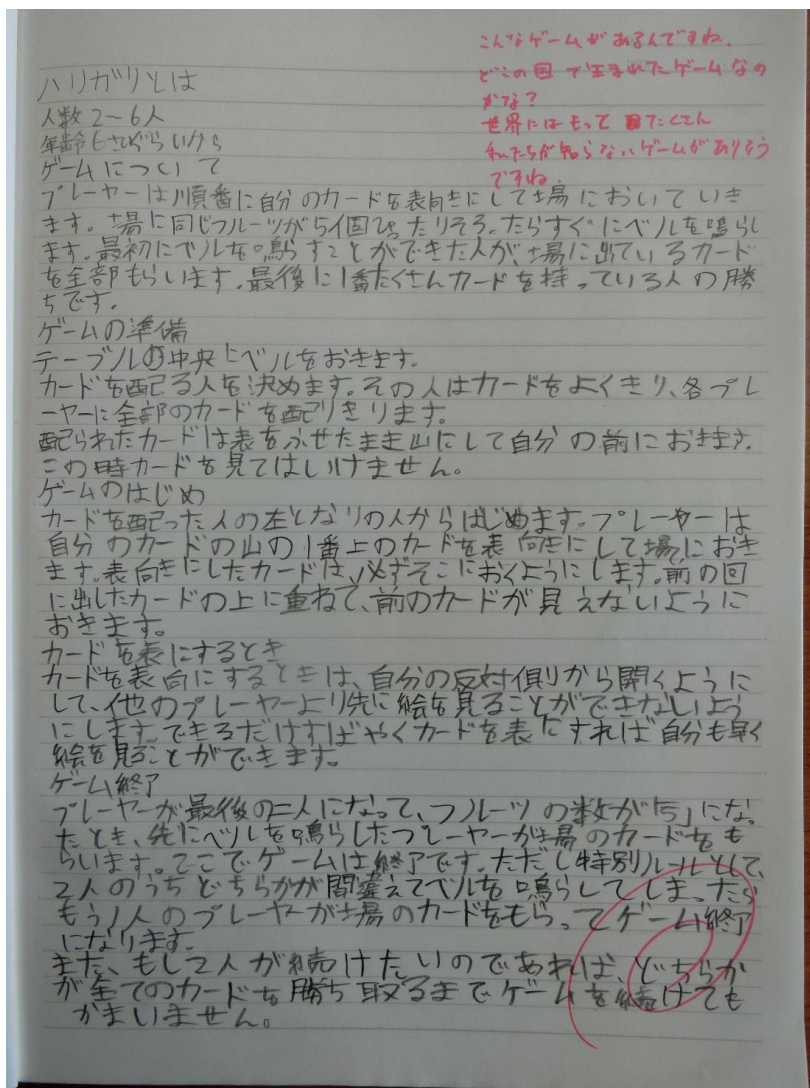 こんなゲームがあるんですね。
どこの国で生まれたゲームなの
かな?
世界にはもっとたくさん
私たちが知らないゲームがありそう
ですね。
ハリガリとは
人数2〜6人
年齢6さいぐらいから
ゲームについて
プレーヤーは順番に自分のカードを表向きにして場においていき
ます。場に同じフルーツが5個ぴったりそろったらすぐにベルを鳴らし
ます。最初にベルを鳴らすことができた人が、場に出ているカード
を全部もらいます。最後に1番たくさんカードを持っている人の勝
ちです。
ゲームの準備
テーブルの中央にベルをおきます。
カードを配る人を決めます。その人はカードをよくきり、各プレ
ーヤーに全部のカードを配りきります。
配られたカードは表をふせたまま山にして自分の前におきます。
この時カードを見てはいけません。
ゲームのはじめ
カードを配った人の左となりの人からはじめます。プレーヤーは
自分のカードの山の1番上のカードを表向きにして場におき
ます。表向きにしたカードは、必ずそこにおくようにします。前の回
に出したカードの上に重ねて、前のカードが見えないように
おきます。
カードを表にするとき
カードを表向にするときは、自分の反対側から開くように
して、他のプレーヤーより先に絵を見ることができないよう
にします。できるだけすばやくカードを表にすれば自分も早く
絵を見ることができます。
ゲーム終了
プレーヤーが最後の二人になって、フルーツの数が「5」になっ
たとき、先にベルを鳴らしたプレーヤーが場のカードをも
らいます。ここでゲームは終了です。ただし特別ルールとして、
2人のうちどちらかが間違えてベルを鳴らしてしまったら
もう1人のプレーヤーが場のカードをもらってゲーム終了
になります。
また、もし2人が続けたいのであれば、どちらか
が全てのカードを勝ち取るまでゲームを続けても
かまいません。